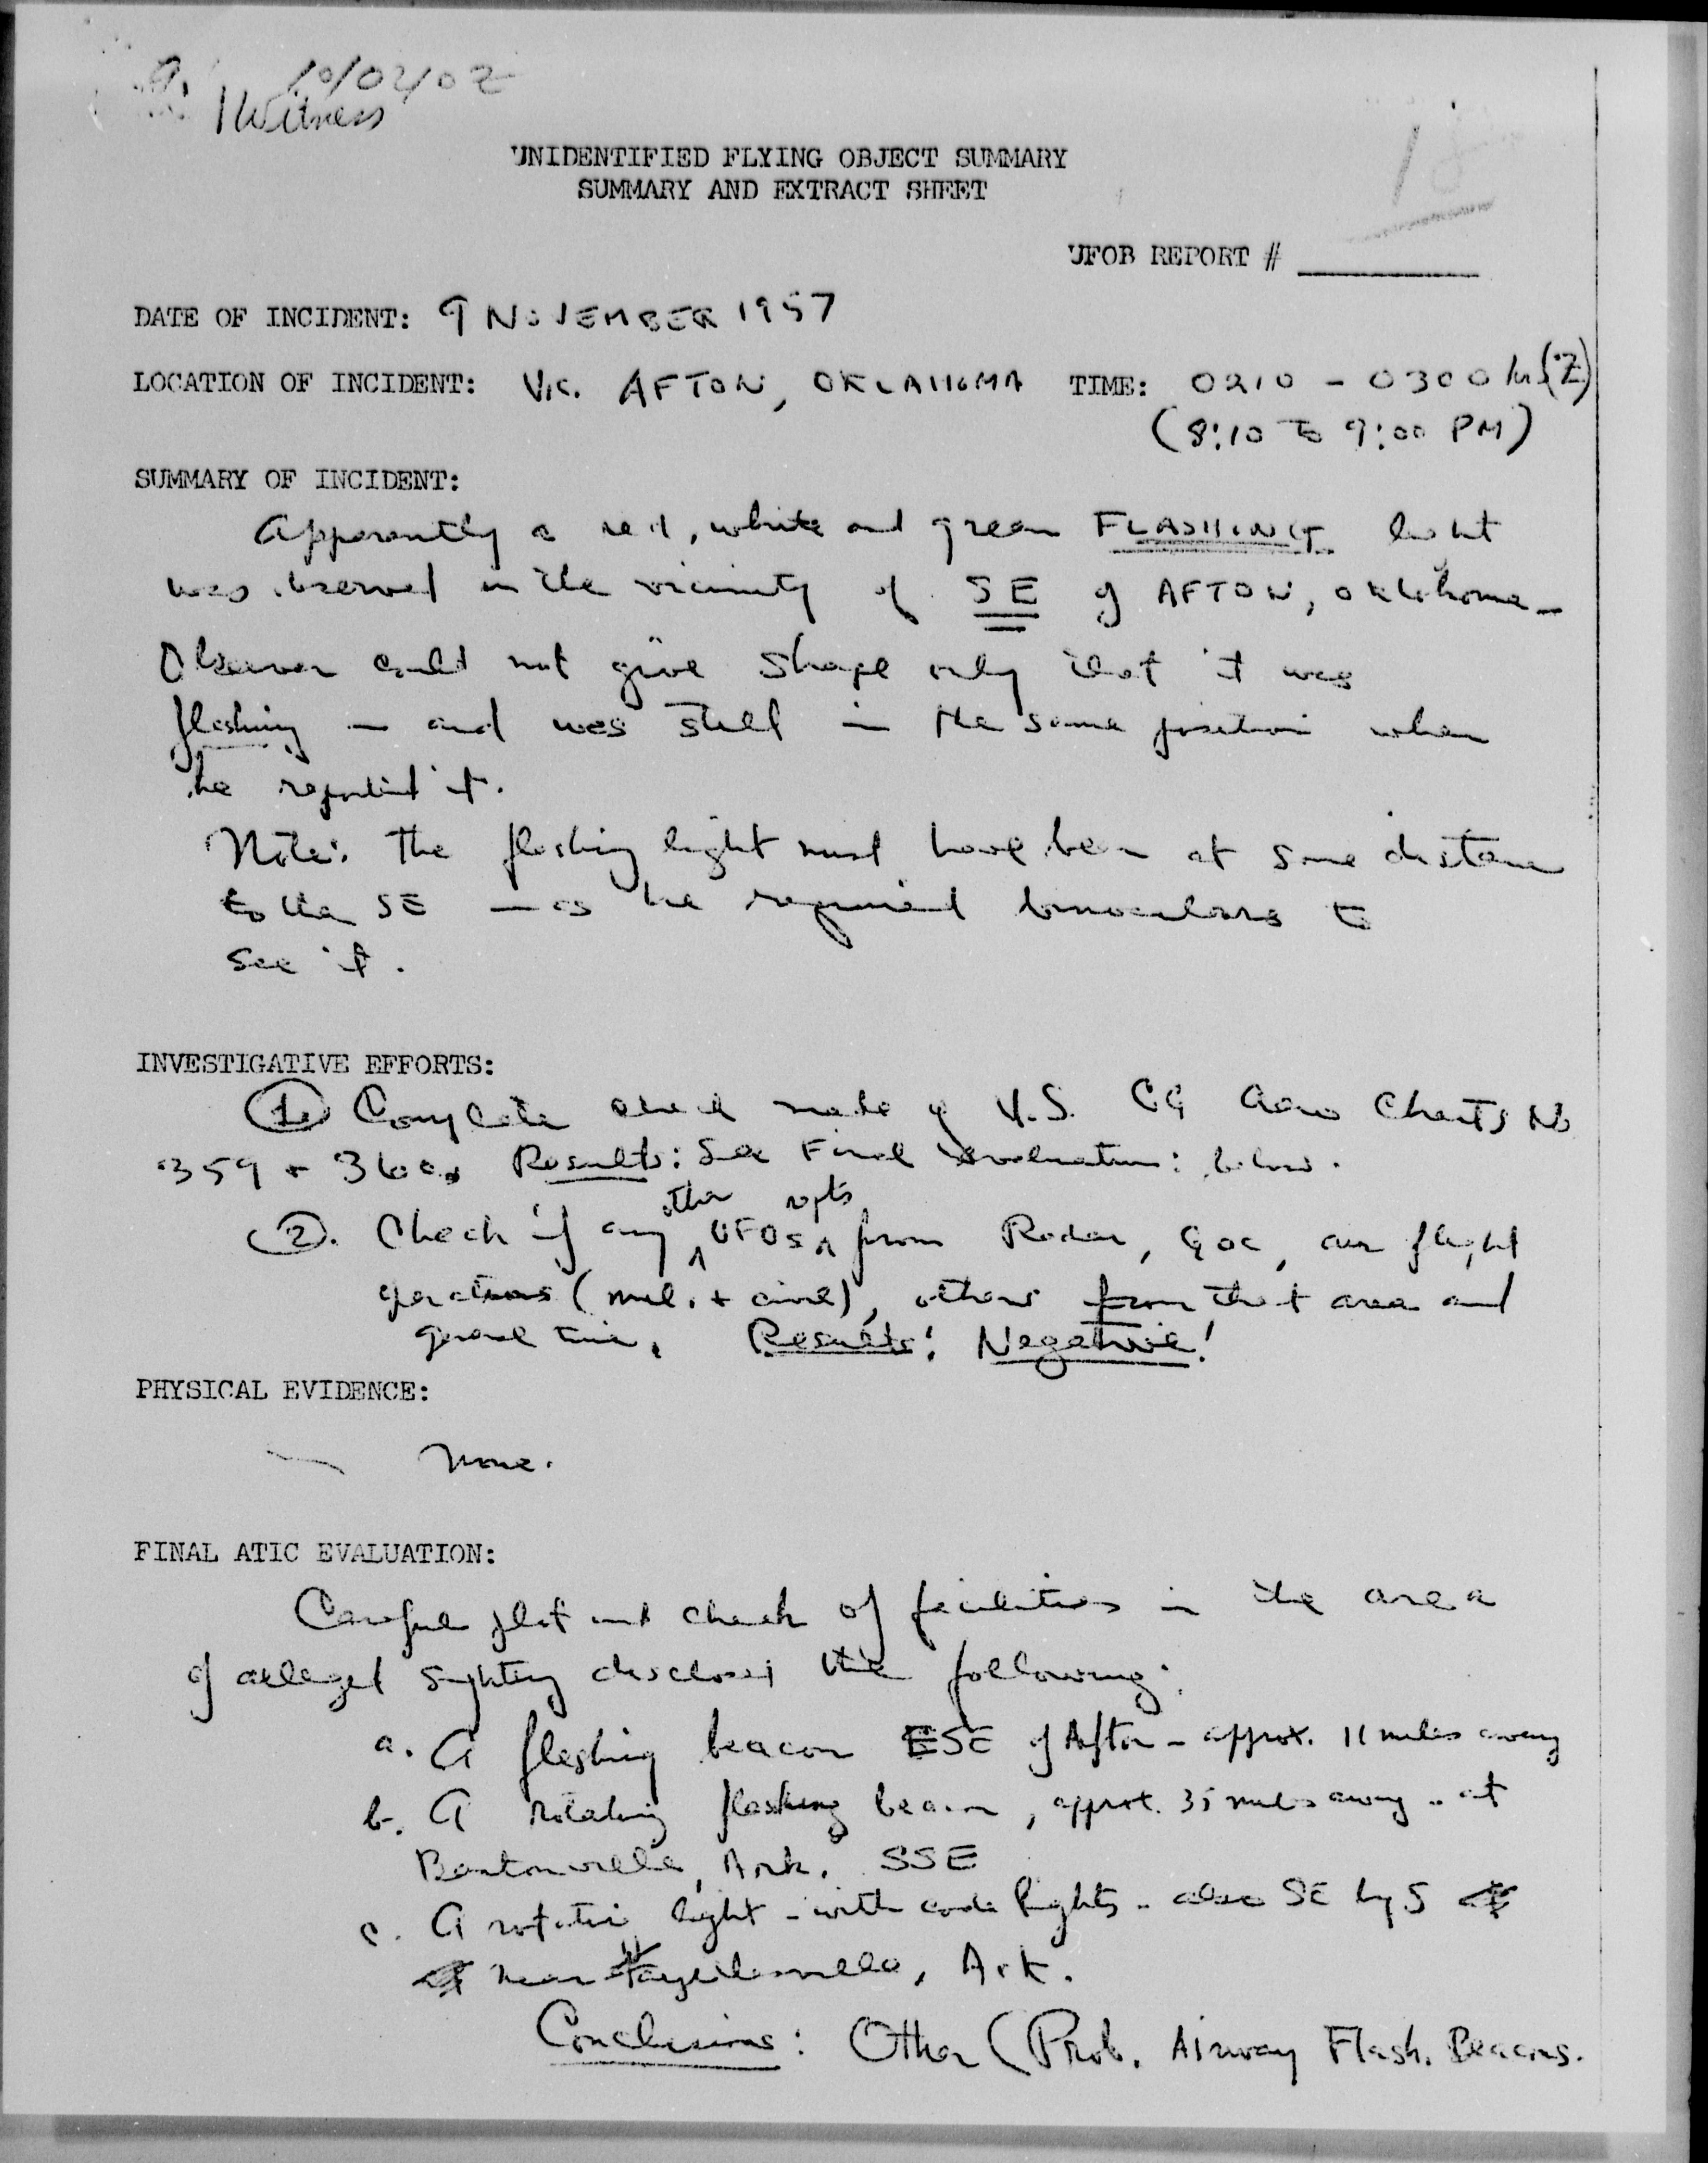 10/0210Z
1 Witness
UNIDENTIFIED FLYING OBJECT SUMMARY
SUMMARY AND EXTRACT SHEET
UFOB REPORT #
DATE OF INCIDENT: 9 NOVEMBER 1957
LOCATION OF INCIDENT: Vic. AFTON, OKLAHOMA TIME: 0210 - 0300 hr (Z)
(8:10 to 9:00 PM)
SUMMARY OF INCIDENT:
Apparently a red, white and green FLASHING light
was observed in the vicinity of SE of AFTON, Oklahoma -
Observer could not give shape only that it was
flashing - and was still in the same position when
he reported it.
Note: The flashing light must have been at some distance
to the SE - as he required binoculars to
see it.
INVESTIGATIVE EFFORTS:
1. Complete check made of U.S. CG Aero Charts No
359 + 360. Results: See Final Evaluation: below.
2. Check if any other UFOs repts from Radar, GOC, air flight
operations (mil. + civil), others from that area and
general time. Results: Negative!
PHYSICAL EVIDENCE:
- None.
FINAL ATIC EVALUATION:
Careful plot and check of facilities in the area
of alleged sighting discloses the following:
a. A flashing beacon ESE of Afton - approx. 11 miles away
b. A rotating flashing beacon, approx. 35 miles away - at
Bentonville, Ark. SSE
c. A rotating light - with code lights - also SE by S
near Fayetteville, Ark.
Conclusions: Other (Prob. Airway Flash. Beacons.